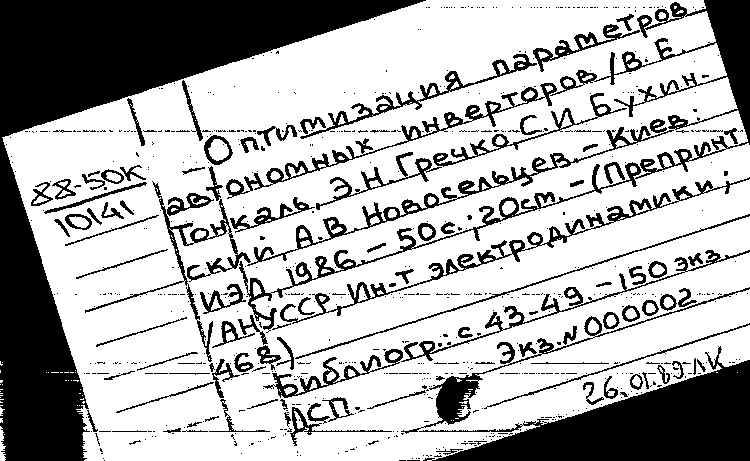 88-50К
10141
- Оптимизация параметров
автономных инверторов /В. Е.
Тонкаль, Э.Н. Гречко, С.И. Бухин-
ский, А.В. Новосельцев. - Киев:
ИЭД, 1986. - 50с.; 20см. - (Препринт
/АНУССР, Ин-т электродинамики;
468)
Библиогр.: с. 43-49. - 150 экз.
ДСП. Экз. N 000002
26.01.89 ЛК